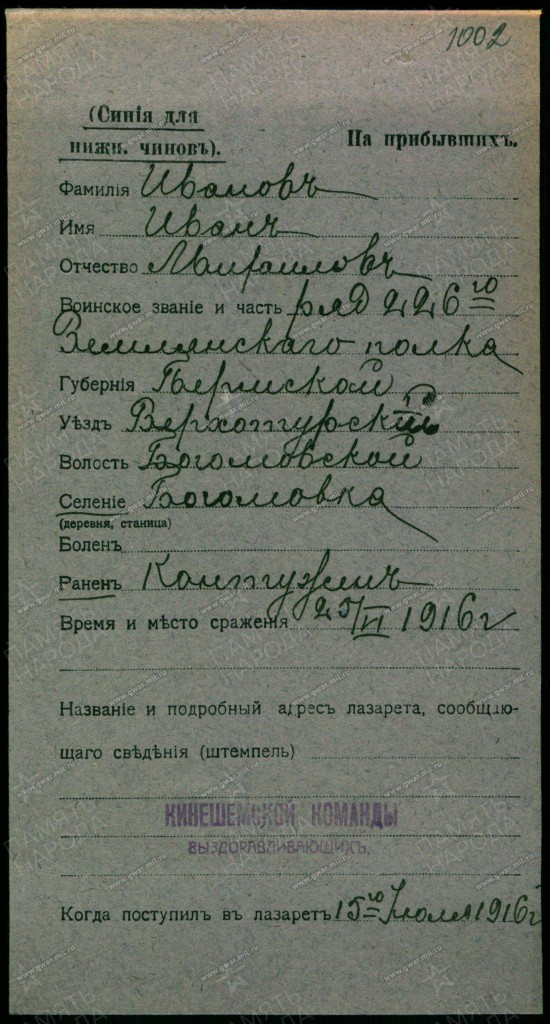 1002
(Синія для
нижн. чиновъ).
На прибывшихъ.
Фамилія Ивановъ
Имя Иванъ
Отчество Михаиловъ
Воинское званіе и часть ряд 226го
Землянскаго полка
Губернія Пермской
Уѣздъ Верхотурскій
Волость Богомовской
Селеніе Богомовка
(деревня, станица)
Боленъ
Раненъ Контуженъ
Время и мѣсто сраженія 25/VI 1916 г
Названіе и подробный адресъ лазарета, сообщаю-
щаго свѣдѣнія (штемпель)
КИНЕШЕМСКОЙ КОМАНДЫ
ВЫЗДОРАВЛИВАЮЩИХЪ.
Когда поступилъ въ лазаретъ 15го Іюля 1916 г